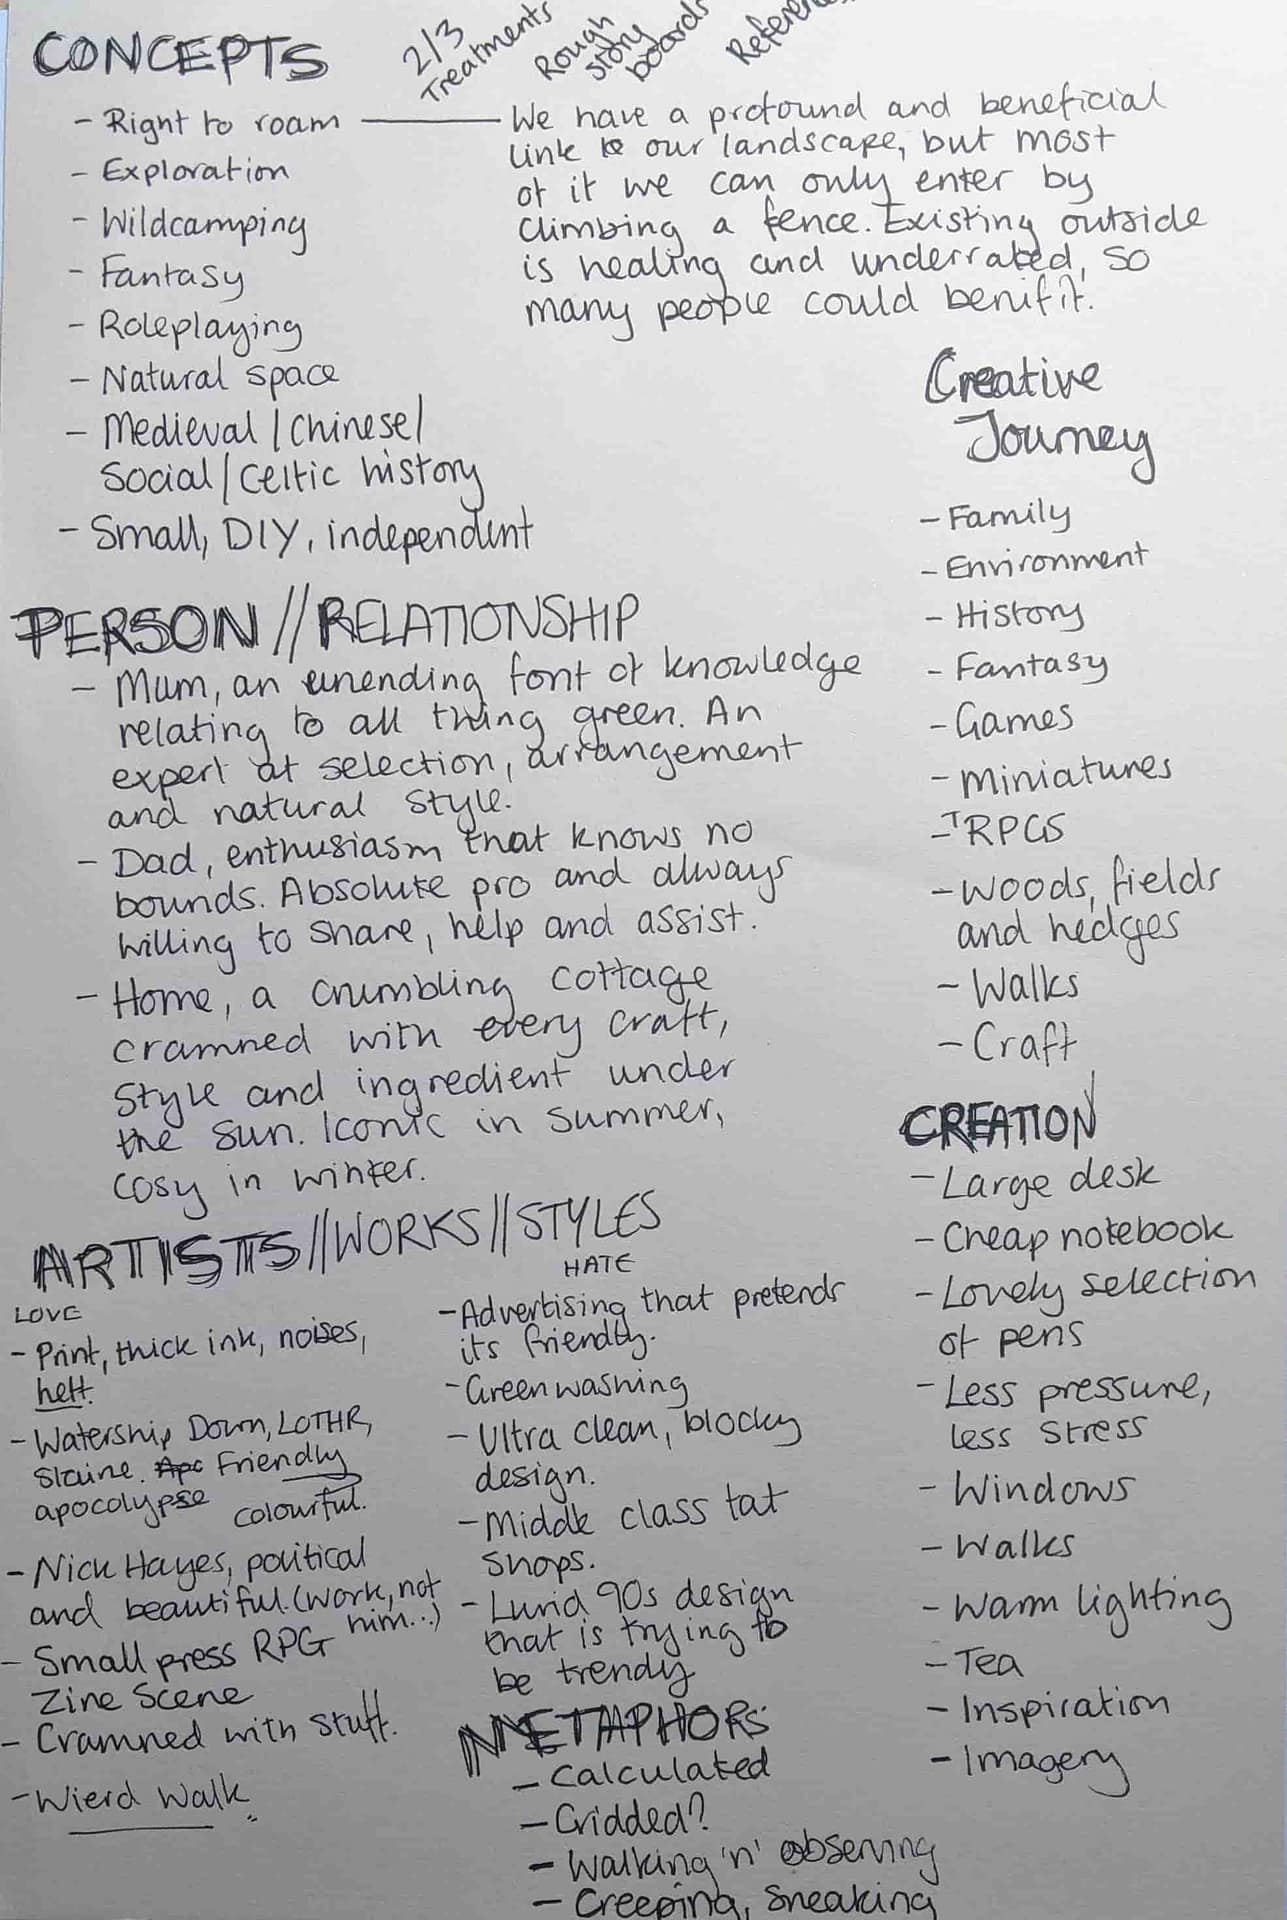 CONCEPTS
2/3
Treatments
Rough
story
boards
- Right to roam
- Exploration
- Wildcamping
- Fantasy
- Roleplaying
- Natural space
- Medieval / Chinese /
Social / Celtic history
- Small, DIY, independent
We have a profound and beneficial
link to our landscape, but most
of it we can only enter by
climbing a fence. Existing outside
is healing and underrated, so
many people could benifit.
Creative
Journey
- Family
- Environment
- History
- Fantasy
- Games
- Miniatures
- TRPGS
- Woods, fields
and hedges
- Walks
- Craft
PERSON // RELATIONSHIP
- Mum, an unending font of knowledge
relating to all thing green. An
expert at selection, arrangement
and natural style.
- Dad, enthusiasm that knows no
bounds. Absolute pro and always
willing to share, help and assist.
- Home, a crumbling cottage
cramned with every craft,
style and ingredient under
the sun. Iconic in summer,
cosy in winter.
CREATION
- Large desk
- Cheap notebook
- Lovely selection
of pens
- Less pressure,
less stress
- Windows
- Walks
- Warm lighting
- Tea
- Inspiration
- Imagery
ARTISTS // WORKS // STYLES
LOVE
- Print, thick ink, noises,
heft.
- Watership Down, LOTHR,
Slaine. Apo Friendly
apocolypse colourful.
- Nick Hayes, political
and beautiful. (Work, not
him...)
- Small press RPG
Zine Scene
- Cramned with stuff.
- Wierd Walk
HATE
- Advertising that pretends
its friendly.
- Greenwashing
- Ultra clean, blocky
design.
- Middle class tat
shops.
- Lurid 90s design
that is trying to
be trendy
METAPHORS
- Calculated
- Gridded?
- Walking 'n' observing
- Creeping, sneaking